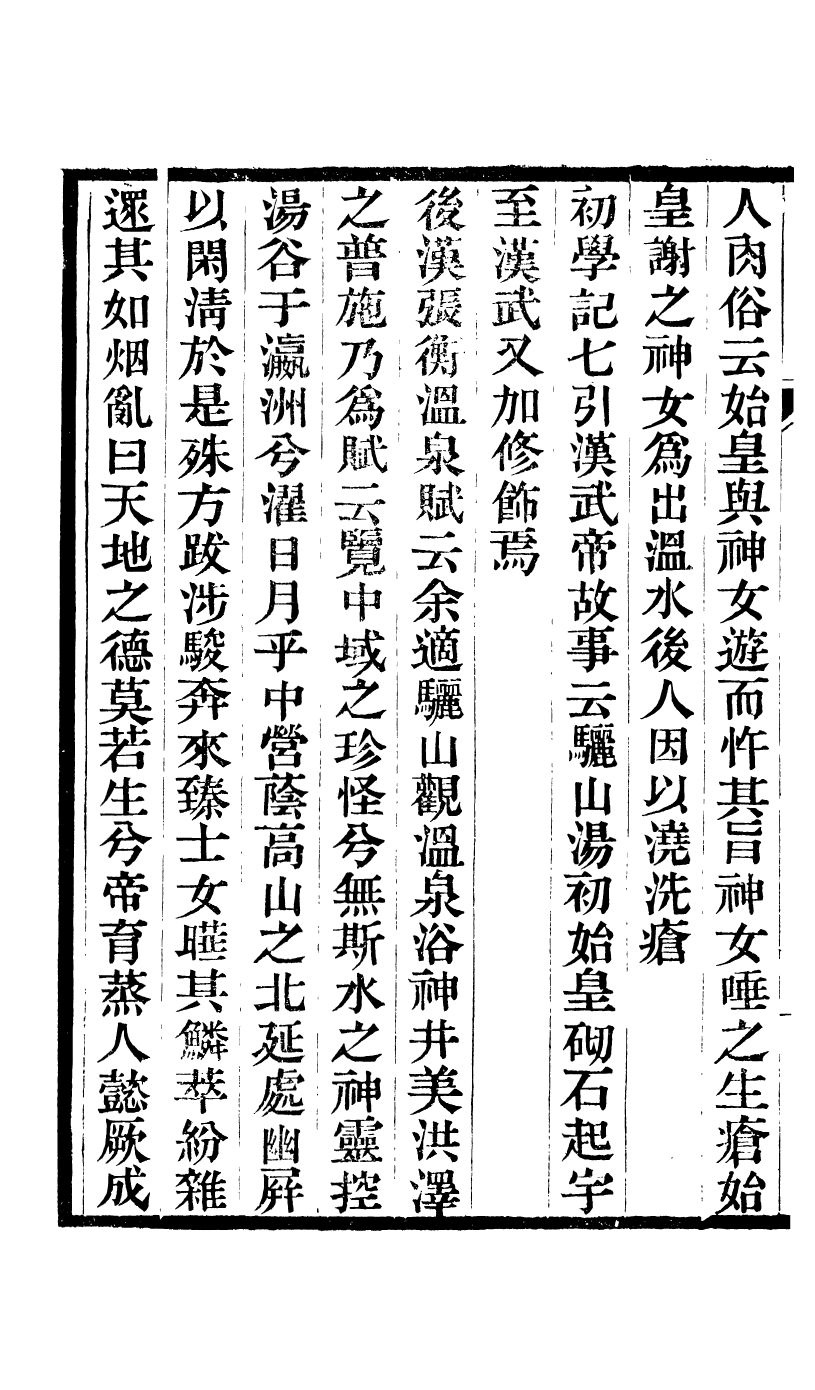 人肉俗云始皇與神女遊而忤其旨神女唾之生瘡始
皇謝之神女爲出溫水後人因以澆洗瘡
初學記七引漢武帝故事云驪山湯初始皇砌石起宇
至漢武又加修飾焉
後漢張衡溫泉賦云余適驪山觀溫泉浴神井美洪澤
之普施乃爲賦云覽中域之珍怪兮無斯水之神靈控
湯谷于瀛洲兮濯日月乎中營蔭高山之北延處幽屛
以閑淸於是殊方跋涉駿奔來臻士女曄其鱗萃紛雜
遝其如烟亂曰天地之德莫若生兮帝育蒸人懿厥成